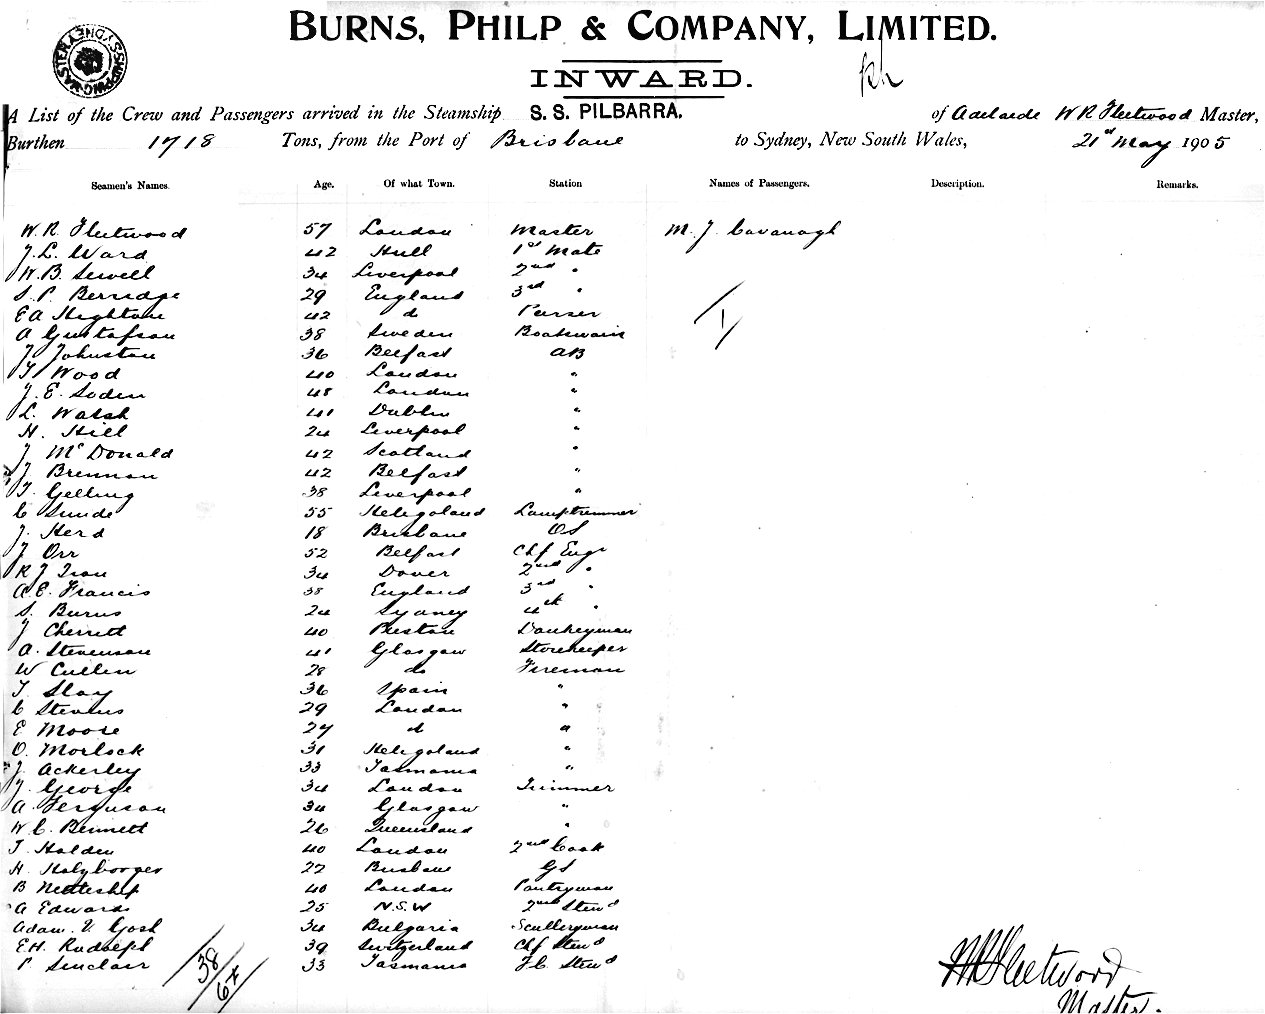 BURNS, PHILP & COMPANY, LIMITED.
SHIPPING MASTER SYDNEY
INWARD.
A List of the Crew and Passengers arrived in the Steamship S. S. PILBARRA. of Adelaide W R Fleetwood Master,
Burthen 1718 Tons, from the Port of Brisbane to Sydney, New South Wales, 21st May 1905
Seamen's Names. Age. Of what Town. Station Names of Passengers. Description. Remarks.
W. R. Fleetwood 57 London Master M. J. Cavanagh
J. L. Ward 42 Hull 1st Mate
W. B. Sewell 34 Liverpool 2nd "
S. P. Berridge 29 England 3rd "
E A Hightom 42 do Purser
A Gustafson 38 Sweden Boatswain
J Johnston 36 Belfast AB
T Wood 40 London "
J. E. Soden 48 London "
L. Walsh 41 Dublin "
H. Hill 24 Liverpool "
J McDonald 42 Scotland "
J. Brennan 42 Belfast "
T. Gelling 38 Liverpool "
C Sunde 55 Heligoland Lamptrimmer
J. Herd 18 Brisbane OS
J Orr 52 Belfast Chf Engr
R J Iron 34 Dover 2nd "
A. E. Francis 38 England 3rd "
S. Burns 24 Sydney 4th "
J Cherrett 40 Preston Donkeyman
A. Stevenson 41 Glasgow Storekeeper
W Cullen 28 do Fireman
T. Slay 36 Spain "
C Stevens 29 London "
E Moore 27 do "
O. Morlock 31 Heligoland "
J. Ackerley 33 Tasmania "
J. George 34 London Trimmer
A. Ferguson 34 Glasgow "
W. C. Bennett 26 Queensland "
T Holden 40 London 2nd Cook
H 22 Brisbane GS
B Nettleship 40 London Pantryman
A Edwards 25 N.S.W 2nd Stewd
Adam. V. Gosh 34 Bulgaria Sculleryman
E.H. Rudolph 39 Switzerland Chf Stewd
P. Sinclair 33 Tasmania F.C. Stewd
38
1
W R Fleetwood
Master.